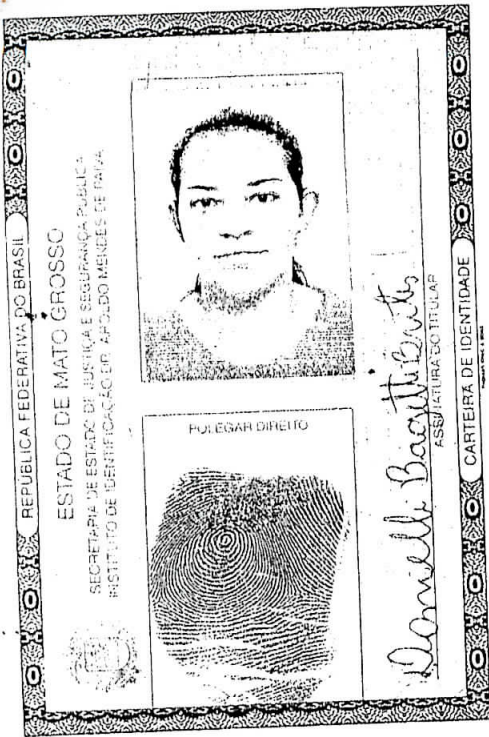 REPÚBLICA FEDERATIVA DO BRASIL
ESTADO DE MATO GROSSO
SECRETARIA DE ESTADO DE JUSTIÇA E SEGURANÇA PÚBLICA
INSTITUTO DE IDENTIFICAÇÃO DR. AROLDO MENDES DE PAIVA
POLEGAR DIREITO
Danielli
ASSINATURA DO TITULAR
CARTEIRA DE IDENTIDADE